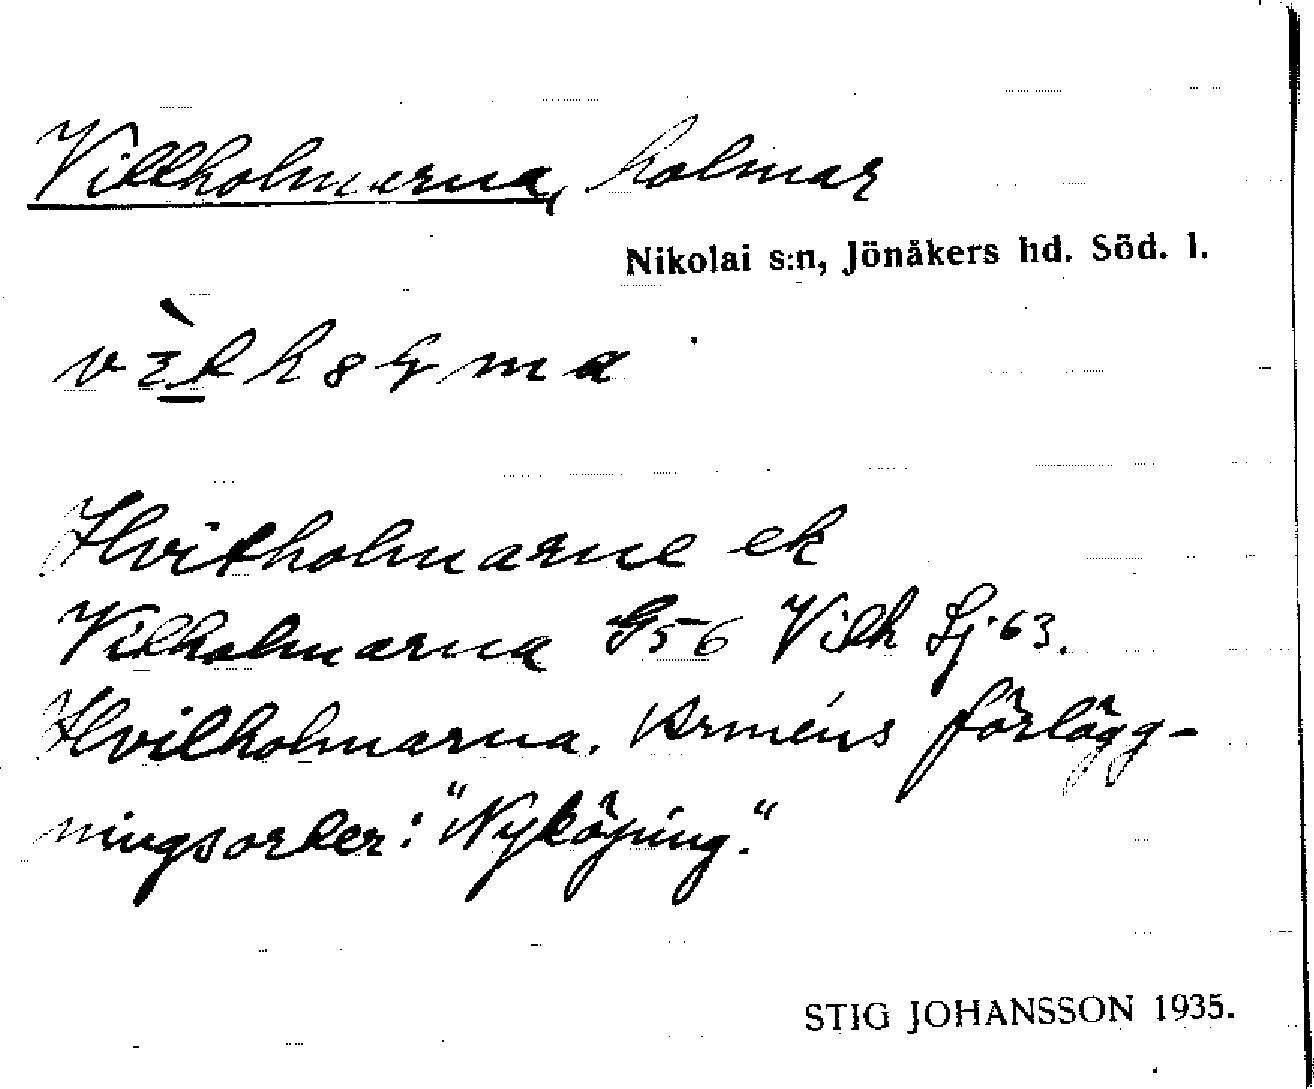 Villholmarna, holmar
Nikolai s:n, Jönåkers hd. Söd. l.
Hvitholmarne ek
Vilholmarna G56 Vilh Sj.63.
Hvilholmarna. Arméns förlägg-
ningsorter: "Nyköping."
STIG JOHANSSON 1935.